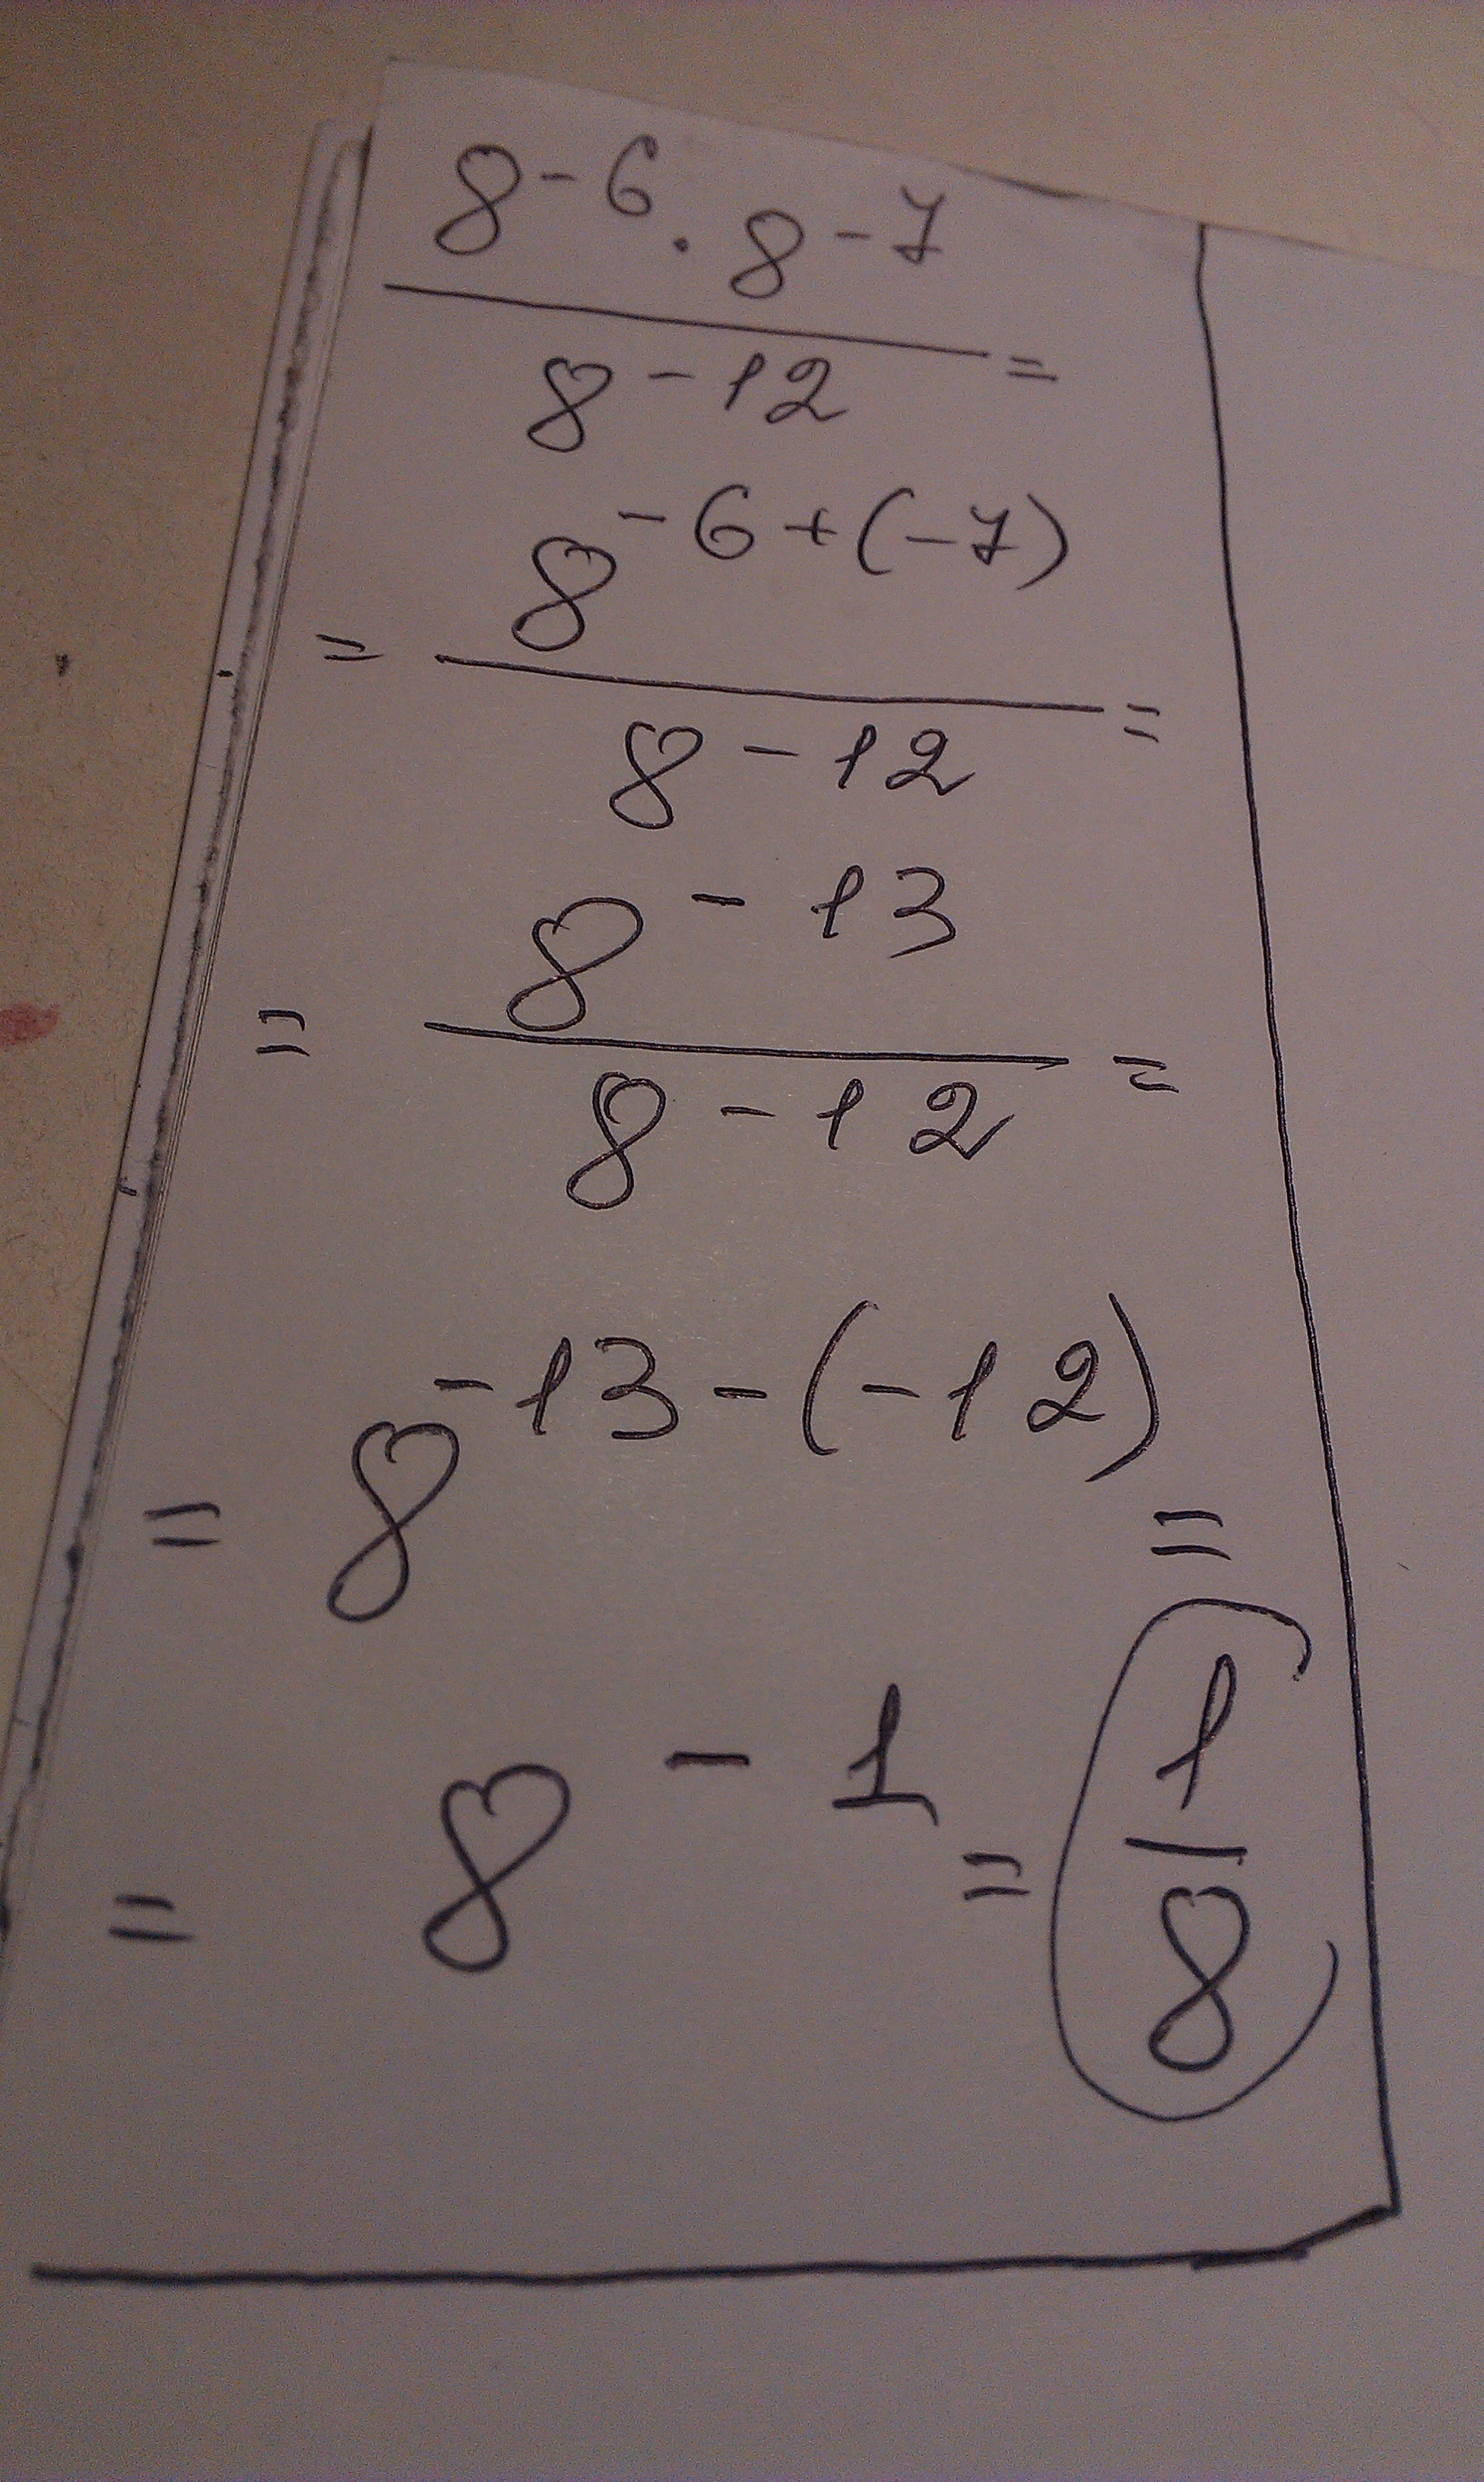 8^-6 · 8^-7
/ 8^-12 =
= 8^-6+(-7)
/ 8^-12 =
= 8^-13
/ 8^-12 =
= 8^-13-(-12) =
= 8^-1 = 1/8